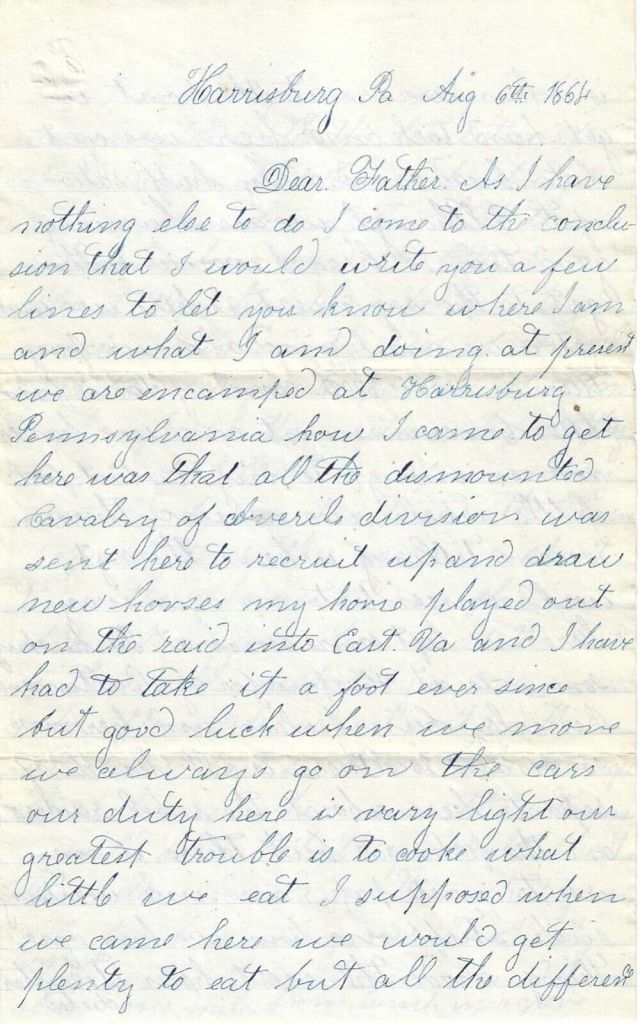 Harrisburg Pa Aug 6th 1864
Dear. Father. As I have
nothing else to do I come to the conclu-
sion that I would write you a few
lines to let you know where I am
and what I am doing. at present
we are encamped at Harrisburg
Pennsylvania how I came to get
here was that all the dismounted
Cavalry of Averils division was
sent here to recruit up and draw
new horses my horse played out
on the raid into East. Va and I have
had to take it a foot ever since
but good luck when we move
we always go on the cars
our duty here is vary light our
greatest trouble is to cooke what
little we eat I supposed when
we came here we would get
plenty to eat but all the different